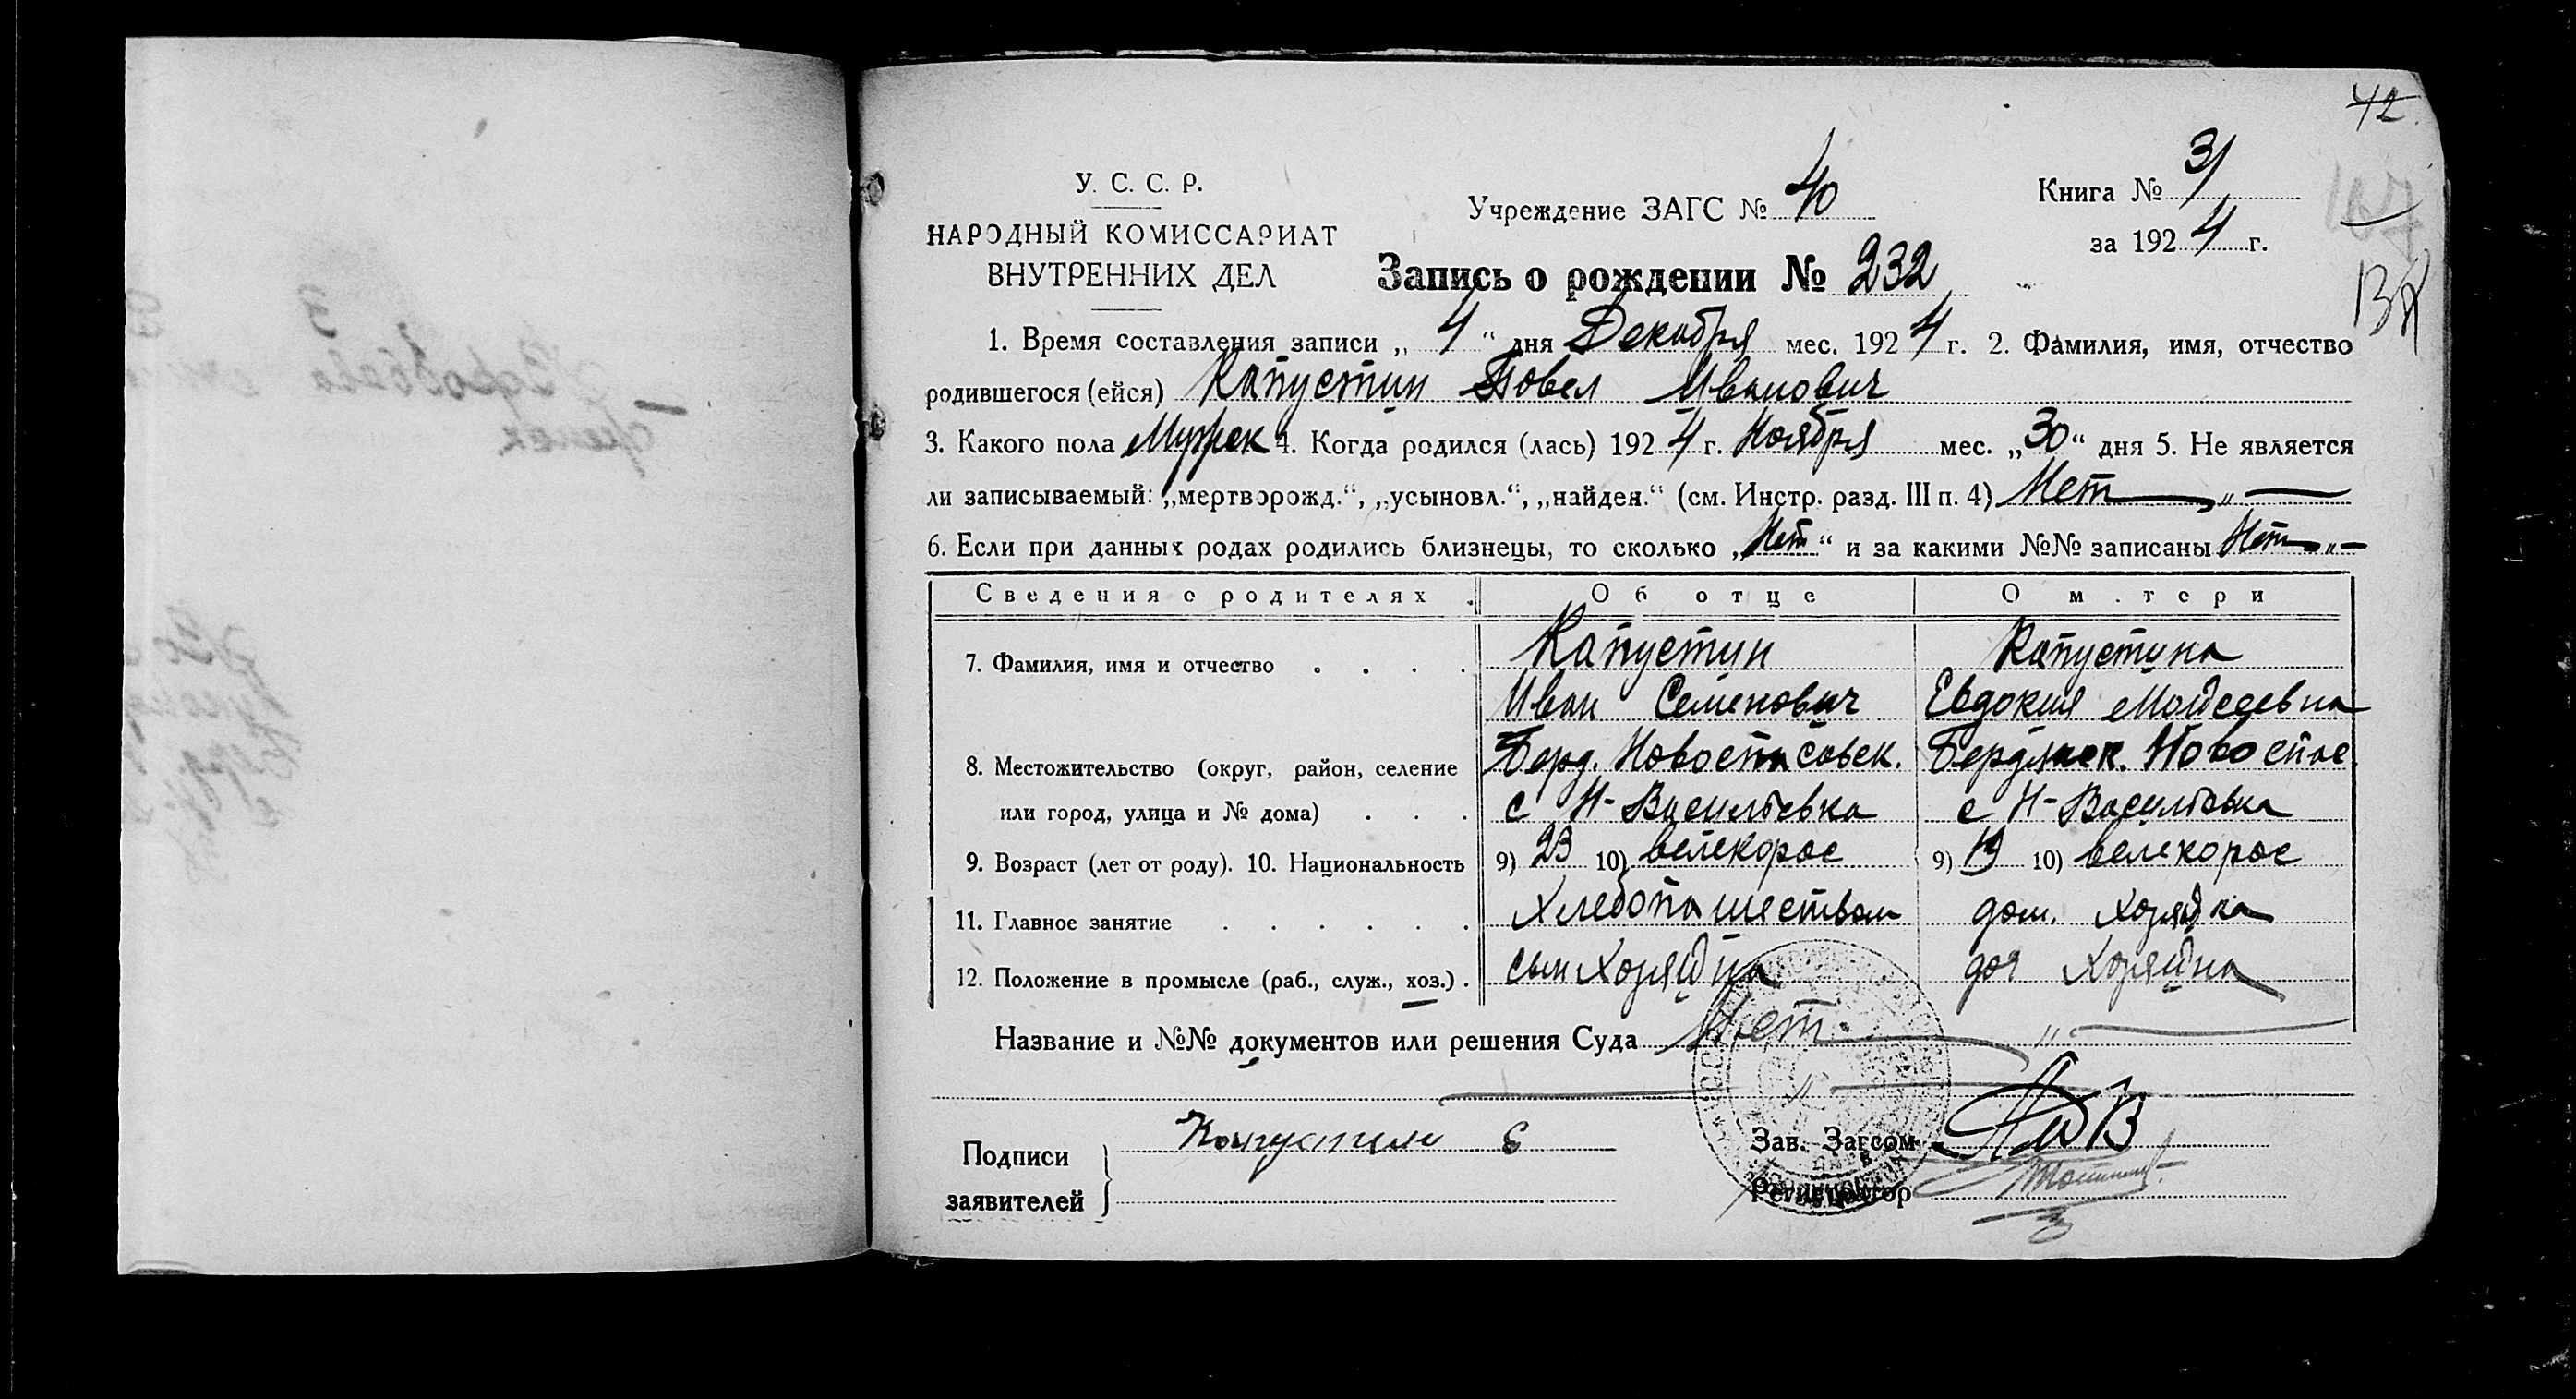 42
У. С. С. Р.
НАРОДНЫЙ КОМИССАРИАТ
ВНУТРЕННИХ ДЕЛ
Учреждение ЗАГС № 40
Книга № 3/
за 1924 г.
Запись о рождении № 232
1. Время составления записи „4“ дня Декабря мес. 1924 г. 2. Фамилия, имя, отчество
родившегося (ейся) Капустин Повел Иванович
3. Какого пола Мужск 4. Когда родился (лась) 1924 г. Ноября мес. „30“ дня 5. Не является
ли записываемый: „мертворожд.“, „усыновл.“, „найден.“ (см. Инстр. разд. III п. 4) Нет — „ —
6. Если при данных родах родились близнецы, то сколько „Нет“ и за какими №№ записаны Нет „ —
Сведения о родителях Об отце О м.тери
7. Фамилия, имя и отчество . . . . Капустин Капустина
Иван Семенович Евдокия Мойсеевна
8. Местожительство (округ, район, селение Берд. Новоспасовск. Бердянск. Новоспас.
или город, улица и № дома) . . . с Н-Васильевка с Н-Васильевка
9. Возраст (лет от роду). 10. Национальность 9) 23 10) велекорос 9) 19 10) велекорос
11. Главное занятие . . . . . . Хлебопашеством дом. хозяйка
12. Положение в промысле (раб., служ., хоз.) . сын хозяйна доч хозяйна
Название и №№ документов или решения Суда Нет — „ —
Подписи
заявителей
Капустин Е
Зав. Загсом
Регистратор